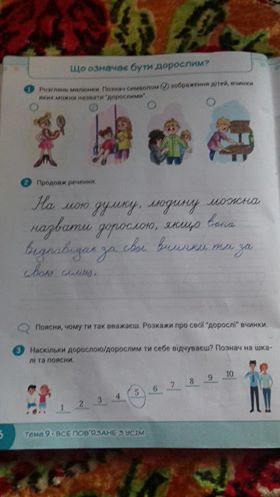 Що означає бути дорослим?
1 Розглянь малюнки. Познач символом ✓ зображення дітей, вчинки
яких можна назвати "дорослими".
2 Продовж речення.
На мою думку, людину можна
назвати дорослою, якщо вона
відповідає за свої вчинки та за
свою сімю.
Поясни, чому ти так вважаєш. Розкажи про свої "дорослі" вчинки.
3 Наскільки дорослою/дорослим ти себе відчуваєш? Познач на шка-
лі та поясни.
1 2 3 4 5 6 7 8 9 10
6 Тема 9 • ВСЕ ПОВ'ЯЗАНЕ З УСІМ